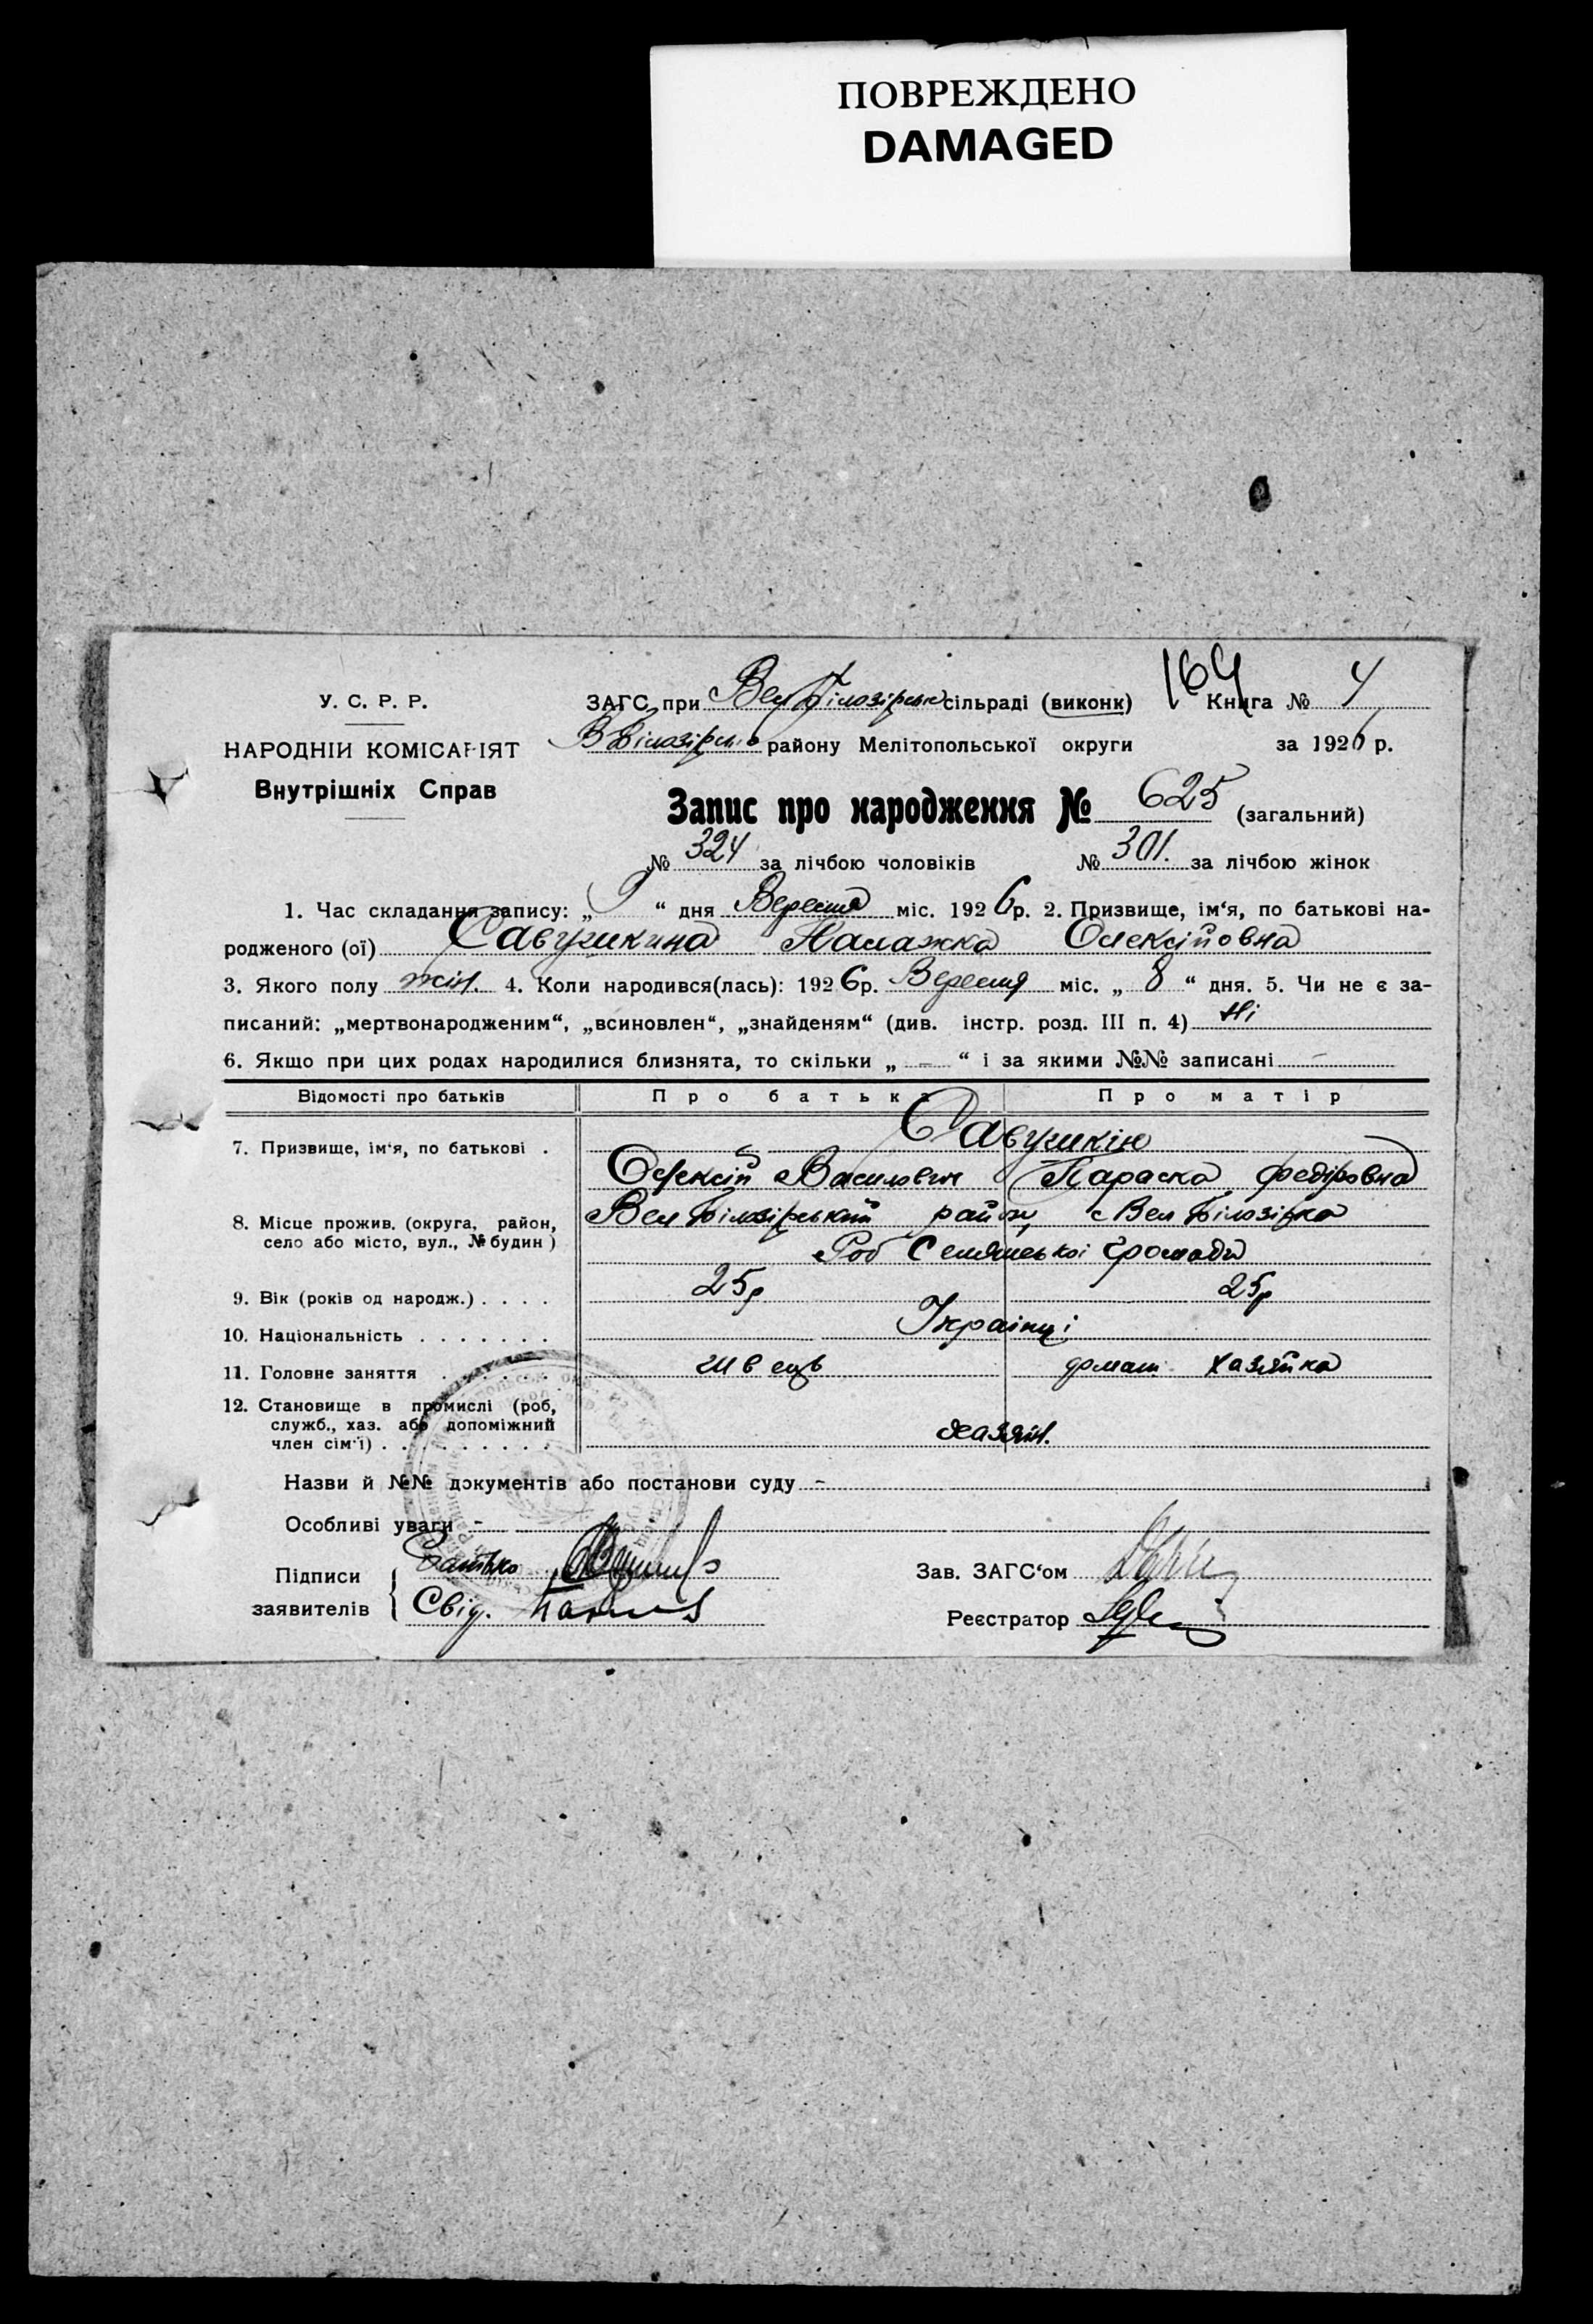 ПОВРЕЖДЕНО
DAMAGED
164
У. С. Р. Р.
НАРОДНІЙ КОМІСАРІЯТ
Внутрішніх Справ
ЗАГС при Вел Білозірськ сільраді (виконк) Книга № 4
В Білозірськ району Мелітопольської округи за 1926 р.
Запис про народження № 625 (загальний)
№ 324 за лічбою чоловіків № 301. за лічбою жінок
1. Час складання запису: „ 9 “ дня Вересня міс. 1926 р. 2. Призвище, ім‘я, по батькові на-
родженого (ої) Савушкина Палажка Олексійовна
3. Якого полу жін. 4. Коли народився(лась): 1926 р. Вересня міс. „ 8 “ дня. 5. Чи не є за-
писаний: „мертвонародженим“, „всиновлен“, „знайденям“ (див. інстр. розд. III п. 4) Ні
6. Якщо при цих родах народилися близнята, то скільки „ – “ і за якими №№ записані –
Відомості про батьків Про батька Про матір
7. Призвище, ім‘я, по батькові . Савушкін
Олексій Василович Параска Федіровна
8. Місце прожив. (округа, район, село або місто, вул., № будин) Вел Білозірський район, с Вел Білозірка
громади
9. Вік (років од народж.) . . . . 25р 25р
10. Національність . . . . . . . Українці
11. Головне заняття . . . . . . швець домаш хазяйка
12. Становище в промислі (роб, служб., хаз. або допоміжний член сім‘ї) . . . . . . . . . хазяїн.
Назви й №№ документів або постанови суду -
Особливі уваги -
Підписи заявителів { Батько
Свід.
Зав. ЗАГС‘ом
Реєстратор